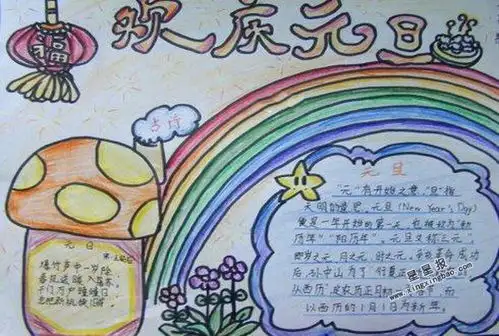 福
欢庆元旦
古诗
元日
宋 王安石
爆竹声中一岁除
春风送暖入屠苏
千门万户曈曈日
总把新桃换旧符
元旦
"元"有开始之意，"旦"指
天明的意思。元旦(New Year's Day)
便是一年开始的第一天，也被称为"新
历年""阳历年"。元旦又称"三元"，
即岁之元、月之元、时之元。
后，孙中山为了"行夏正
以西历"
以西历的1月1日为新年。
星星报
www.xingxingbao.com